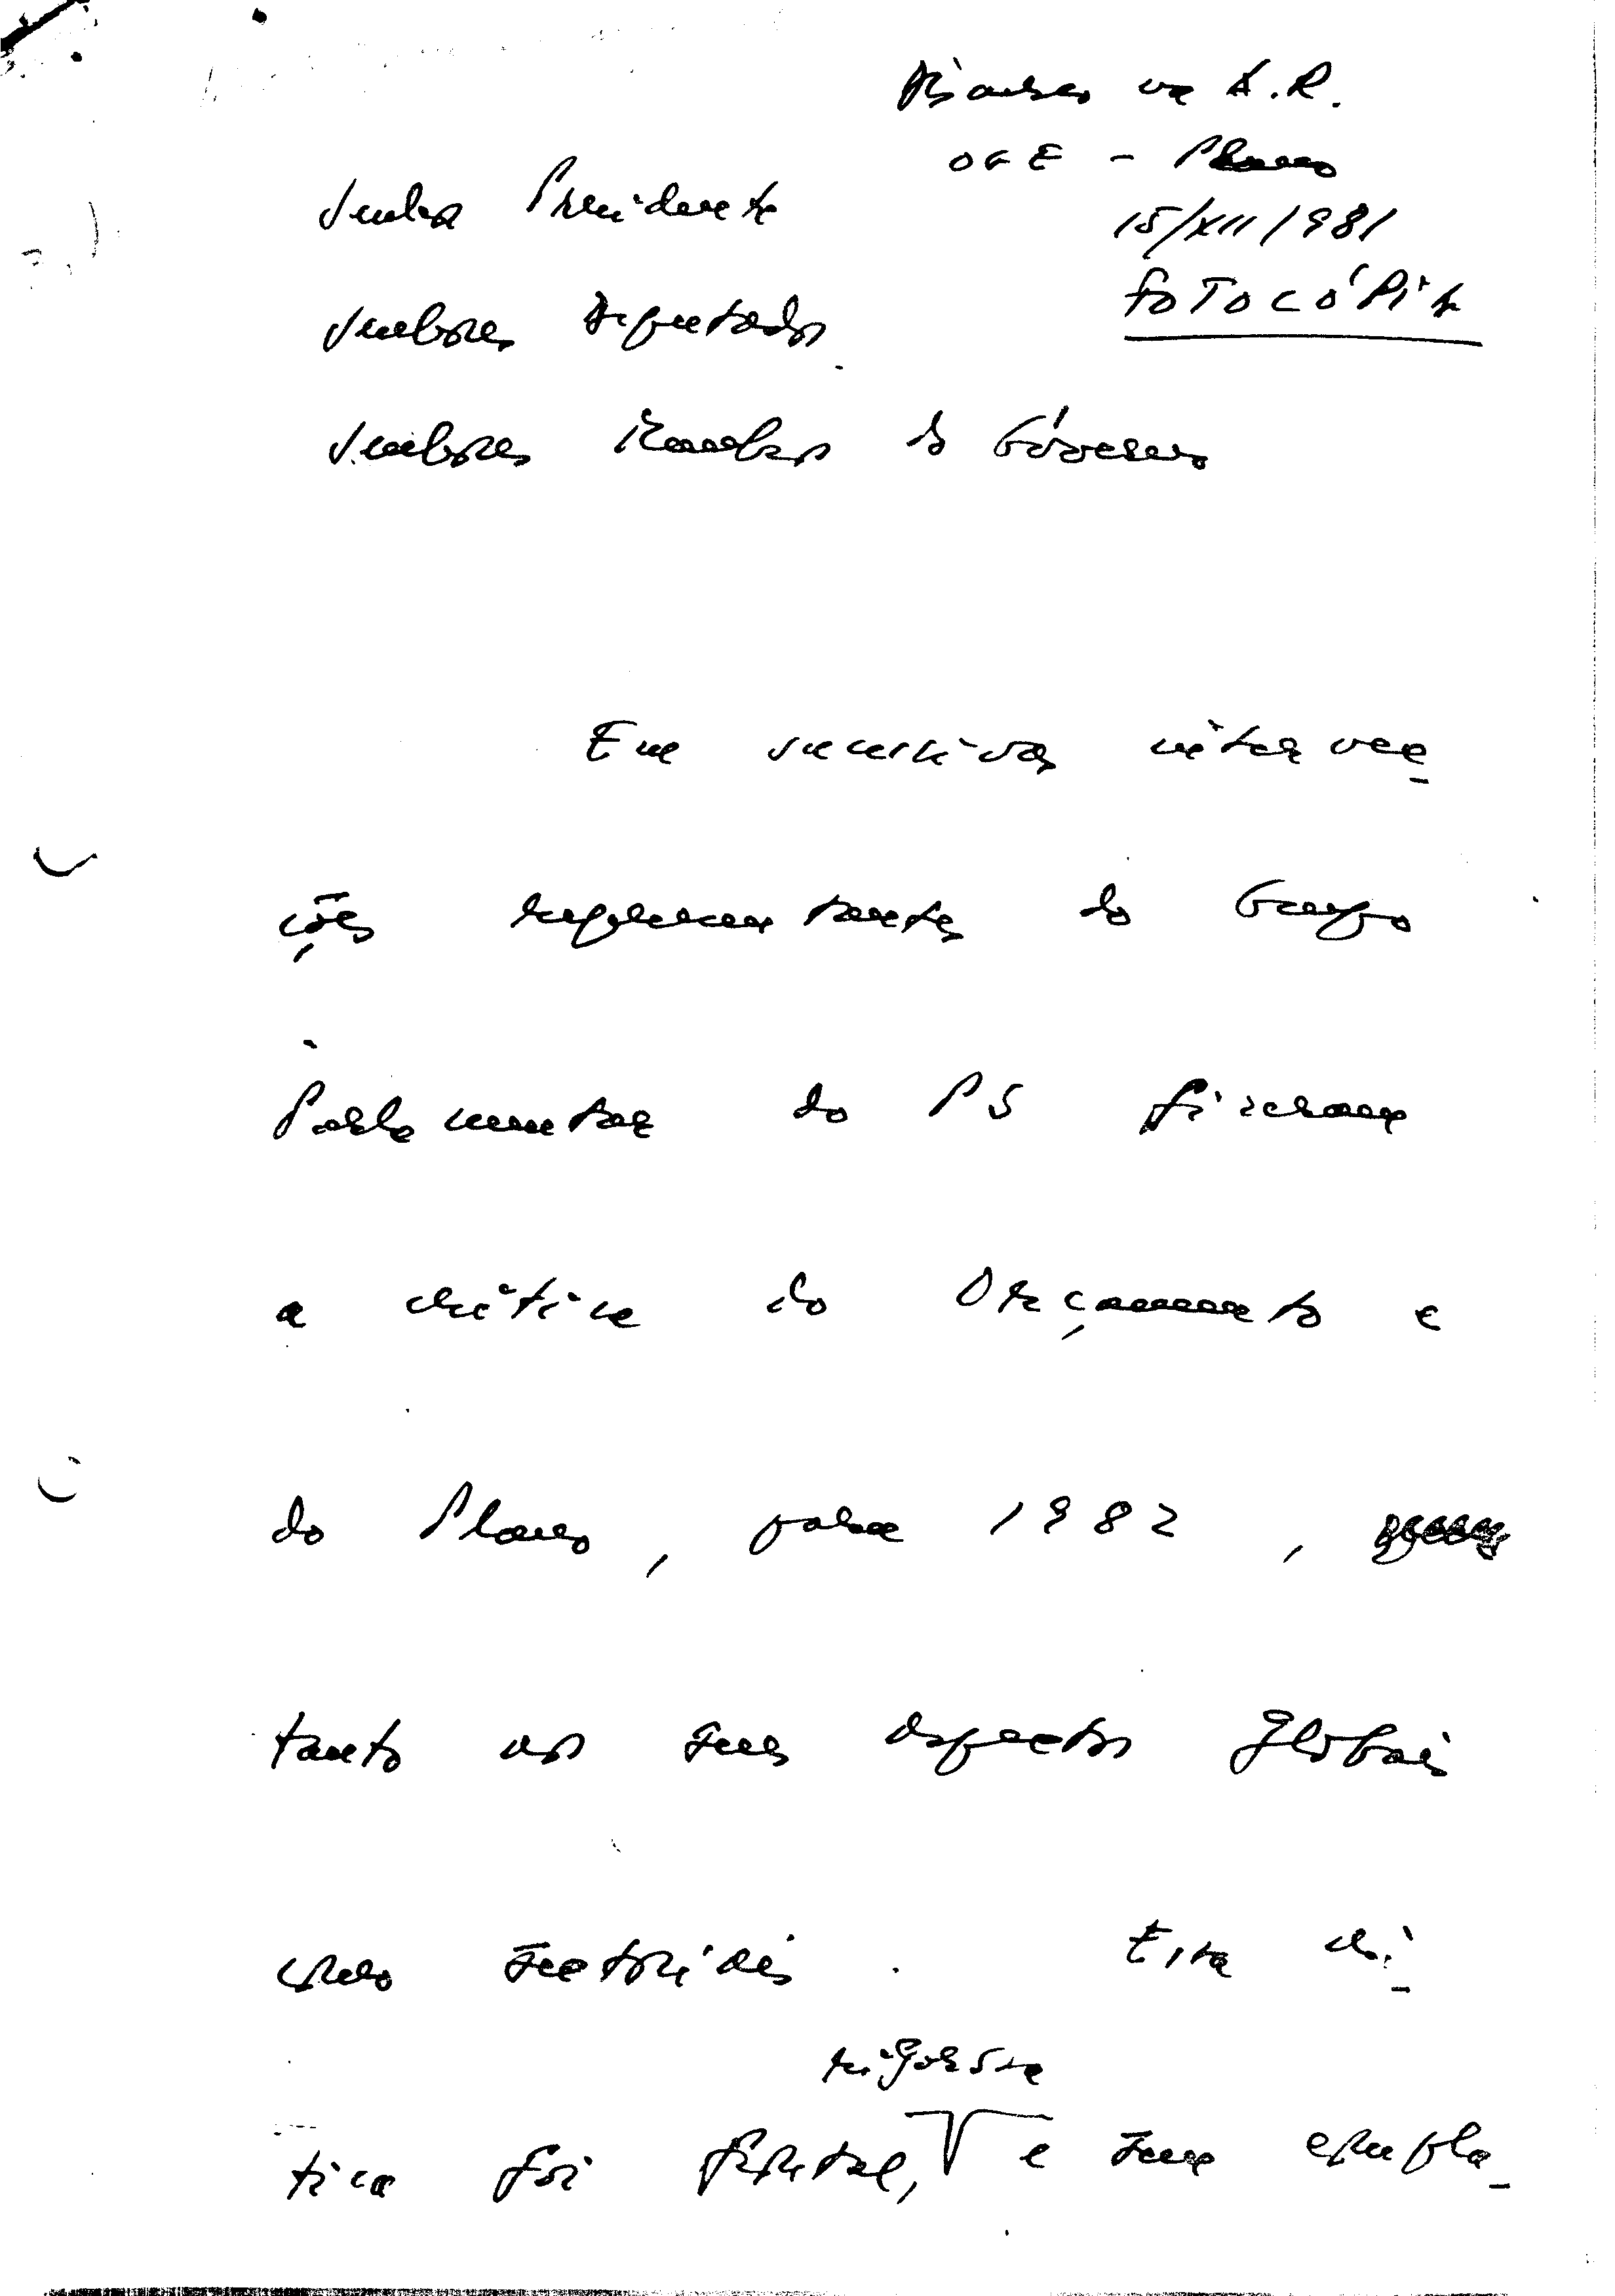 Discurso na A.R.
OGE - Plano
15/XII/1981
FOTOCÓPIA
Senhor Presidente
Senhores Deputados
Senhores Membros do Governo
Em sucessivas interven-
ções representantes do Grupo
Parlamentar do PS fizeram
a crítica do Orçamento e
do Plano, para 1982,
tanto nos seus aspectos globais
como sectoriais. Esta crí-
rigorosa
tica foi frontal, e sem compla-